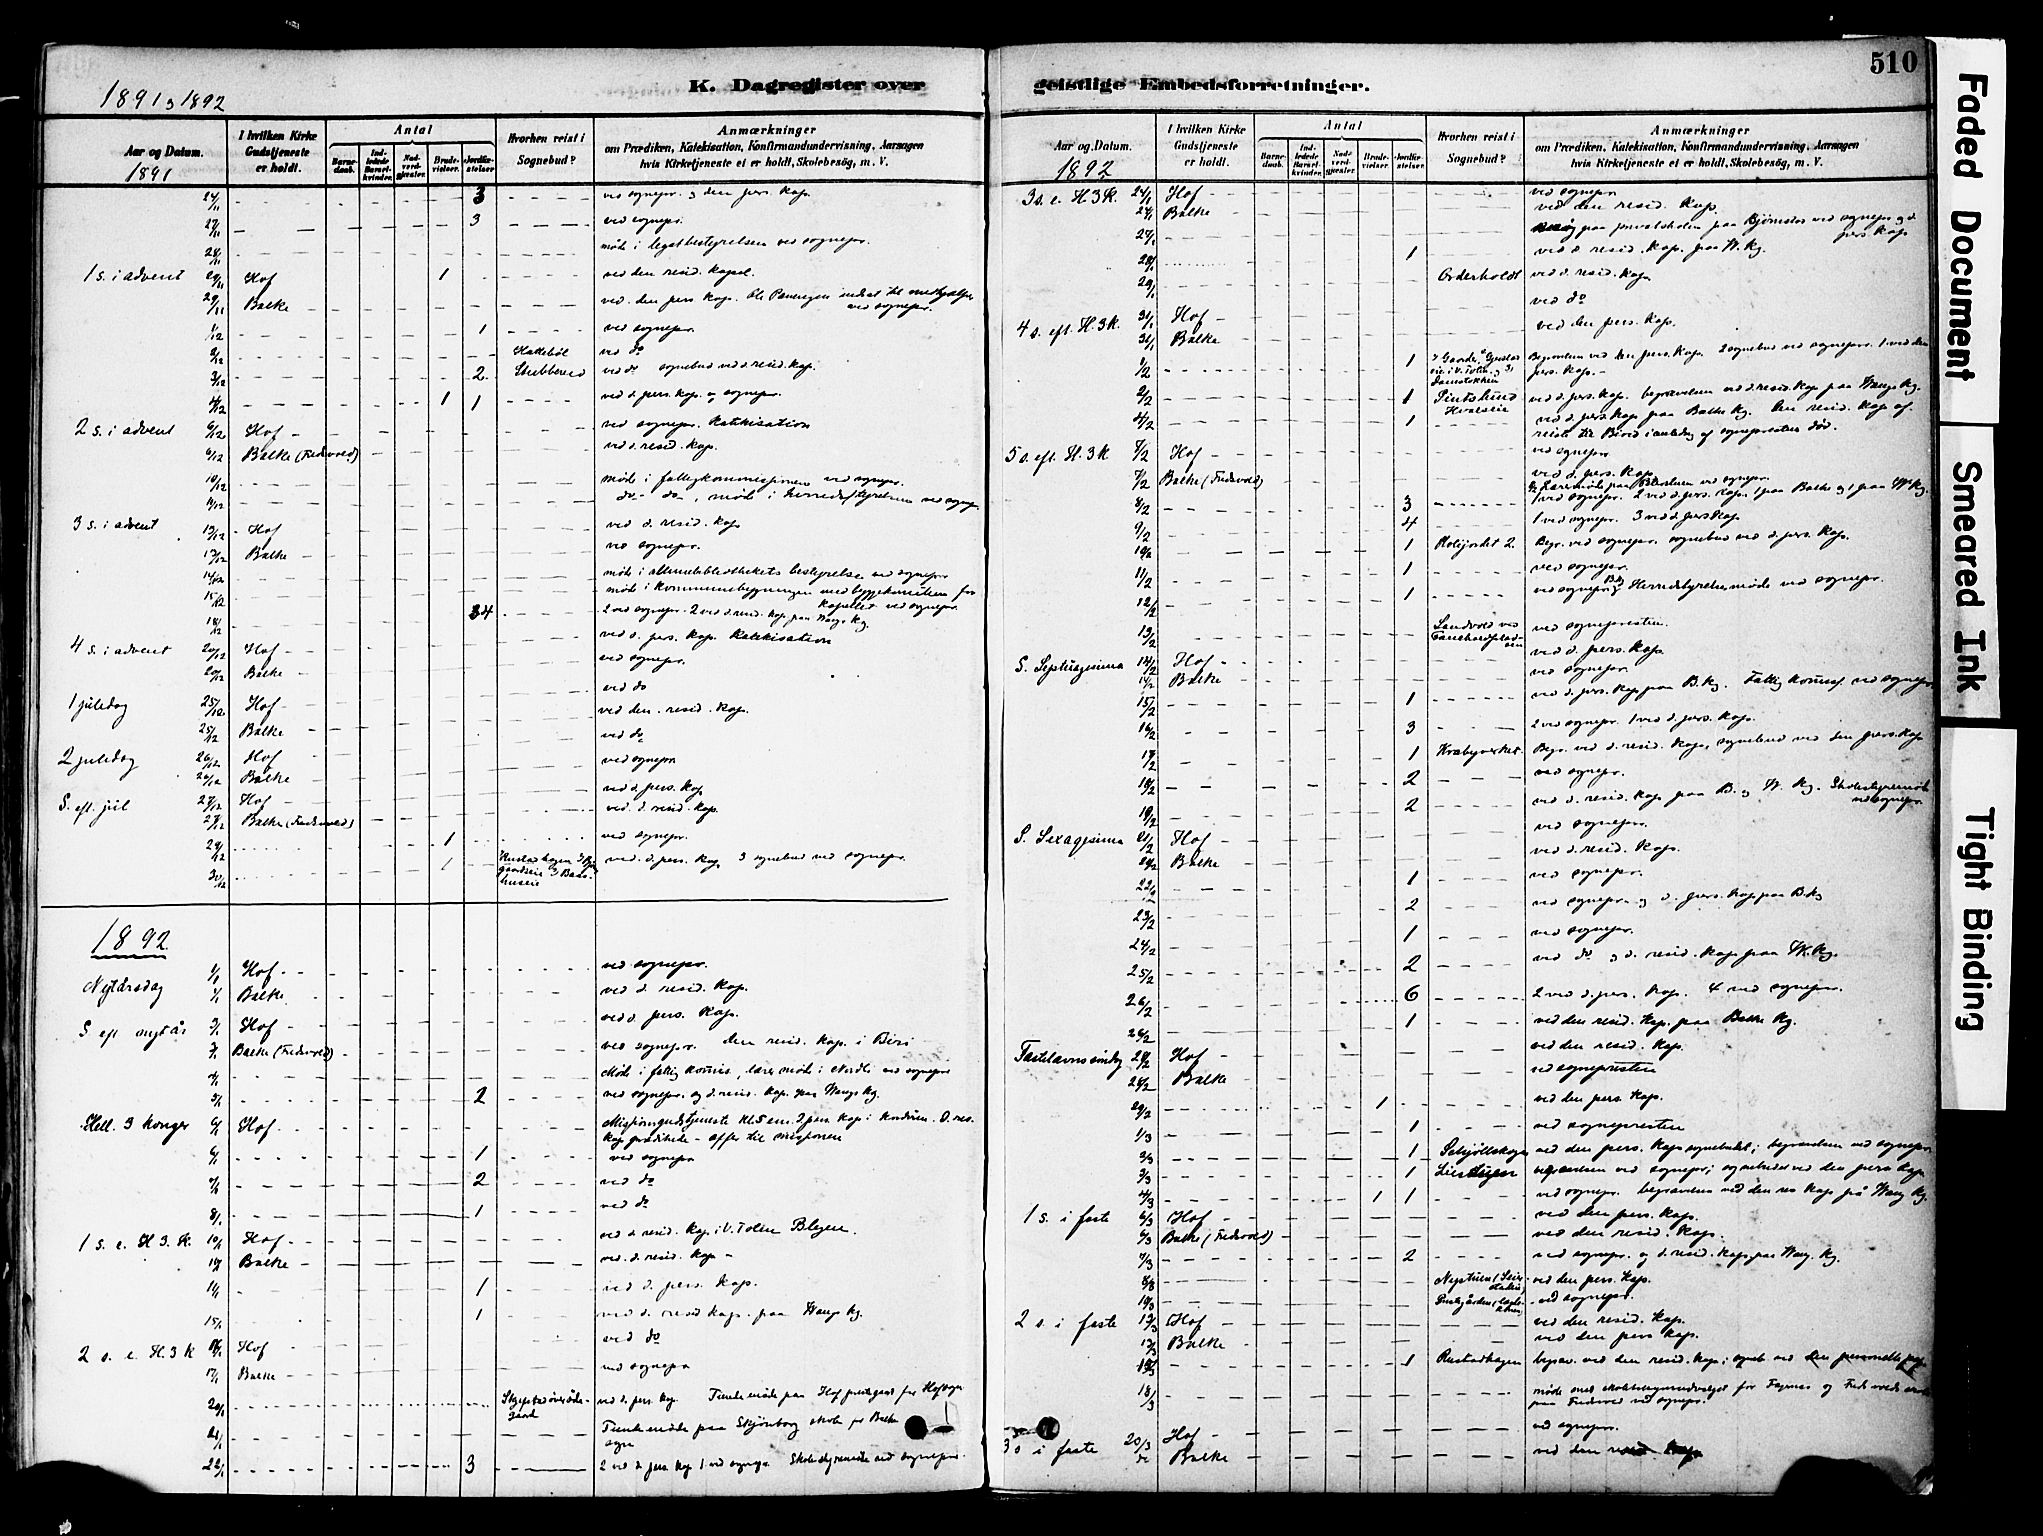 510
K. Dagregister over
geistlige Embedsforretninger.
1891 og 1892
Aar og Datum.
1891
I hvilken Kirke Gudstjeneste er holdt.
Antal
Barne-daab.
Ind-ledede Barsel-kvinder.
Nad-verd-gjæster.
Brude-vielser.
Jordfæ-stelser
Hvorhen reist i Sognebud?
Anmærkninger
om Prædiken, Katekisation, Konfirmandundervisning, Aarsagen
hvis Kirketjeneste ei er holdt, Skolebesög, m. V.
24/11 3 ved sognepr. og den pers. Kap.
27/11 3 ved sognepr.
28/11 møde i legatbestyrelsen ved sognepr.
1 s. i advent 29/11 Hof 1 ved den resid. Kapel.
29/11 Balke ved den pers. Kap.
1/12 1 ved sognepr.
2/12 ved do
3/12 2 ved do sognebud ved d. resid. Kap.
4/12 1 1 ved d. pers. Kap. og sognepr.
2 s. i advent 6/12 Hof ved sognepr. Katekisation
6/12 Balke (Fredsvold) ved d. resid. Kap.
10/12 møde i fattigkommissionen ved sognepr.
11/12 do - do, møde i herredsstyrelsen ved sognepr.
3 s. i advent 13/12 Hof ved d. resid. Kap
13/12 Balke ved sognepr.
14/12 møde i almuebibliothekets bestyrelse ved sognepr
15/12 møde i kommunebygningen med byggekomiteen for kapellet ved sognepr.
18/12 34 2 ved sognepr. 2 ved d. resid. Kap. paa Wangs Kg.
4 s. i advent 20/12 Hof ved d. pers. Kap. Katekisation
20/12 Balke ved sognepr.
ved do
1 juledag 25/12 Hof ved den resid. Kap.
25/12 Balke ved do
2 juledag 26/12 Hof ved sognepr
26/12 Balke ved d. pers. Kap
S. eft. jul 27/12 Hof ved d. resid. Kap.
27/12 Balke (Fredsvold)
29/12 1 ved sognepr.
30/12 1 ved d. pers. Kap, 3 sognebud ved sognepr.
1892
Nytårsdag 1/1 Hof ved sognepr.
1/1 Balke ved d. resid. Kap.
S eft nytår 3/1 Hof ved d. pers. Kap.
3/1 Balke (Fredsvold) ved sognepr. den resid. Kap. i Biri
4/1 Møde i fattig komis., læremøde i Nordli ved sognepr
5/1 2 ved sognepr. og d. resid. Kap. paa Wangs Kg.
Hell. 3 konger 6/1 Hof Missionsgudstjeneste Kl. 5 em.
Kap prædikede - offer til missionen
6/1 1 ved sognepr
7/1 2 ved do
8/1 1 ved do
1 s. e. H. 3. K. 10/1 Hof ved d. resid. Kap. i V. Toten
10/1 Balke ved d. resid. Kap -
11/1 1 ved d. pers. Kap.
15/1 1 ved d. resid Kap. paa Wangs Kg.
2 s. e. H. 3 K 17/1 Hof ved do
17/1 Balke ved sognepr
20/1 ved d. pers. Kap.
21/1 møde paa Skjønborg skole for Balke sogn
22/1 3 2 ved d pers Kap 1 ved sognepr Skolestyremøde ved sognepr.
Aar og Datum.
1892
I hvilken Kirke Gudstjeneste er holdt.
Antal
Barne-daab.
Ind-ledede Barsel-kvinder.
Nad-verd-gjester.
Brude-vielser.
Jordfæ-stelser.
Hvorhen reist i Sognebud?
Anmærkninger
om Prædiken, Katekisation, Konfirmandundervisning, Aarsagen
hvis Kirketjeneste ei er holdt, Skolebesög, m. V.
3 s. e. H. 3 K. 24/1 Hof ved sognepr
24/1 Balke ved den resid. Kap.
27/1 Besøg paa privatskolen paa Bjørnstad ved sognepr og d. pers. Kap
28/1 1 ved d. resid. Kap. paa W. Kg.
29/1 Orderholdt ved d. resid. Kap
ved do
4 s. eft. H. 3 K. 31/1 Hof ved den pers. Kap.
31/1 Balke
1/2 1 Begravelsen ved den pers. Kap. 2 sognebud ved sognepr. 1 ved den pers. Kap. -
2/2 1 ved d. pers. Kap. begravelsen ved d. resid. Kap paa Wangs Kg.
4/2 1 ved d. pers Kap paa Balke Kg. Den resid. Kap af-
reiste til Bird i anledng af sogneprestens død.
5 s. eft. H. 3 K 7/2 Hof ved sognepr
7/2 Balke (Fredsvold) ved d. pers. Kap
8/2 3 1 ved sognepr. 2 ved d. pers. Kap. 1 paa Balke og 1 paa W. Kg.
9/2 4 1 ved sognepr. 3 ved d. pers Kap
10/2 1 Begr. ved sognepr. sognebud ved d. pers. Kap.
11/2 1 ved sognepr.
12/2 1 ved sognepr. Herredsstyrelsesmøde ved sognepr.
13/2 ved sognepresten.
S. Septuagesima 14/2 Hof ved d. pers. Kap
14/2 Balke ved sognepr
15/2 1 ved d. pers. Kap paa B. Kg. Fattig Komis. ved sognepr
16/2 3 2 ved sognepr. 1 ved d. pers. Kap.
17/2 1 Kræbyverket Begr. ved d. resid. Kap., sognebud ved den pers. Kap
18/2 2 ved sognepr.
19/2 2 ved d. resid. Kap paa B. og W. Kg. Skolestyremøde ved sognepr.
S. Sexagesima 21/2 Hof ved sognepr.
21/2 Balke ved d. resid. Kap.
22/2 1 ved sognepr.
23/2 2 ved sognepr. og d. pers. Kap paa B. Kg
24/2 1 ved sognepr.
25/2 2 ved do og d. resid. Kap. paa W. Kg.
26/2 6 2 ved d. pers. Kap. 4 ved sognepr.
1 ved den resid. Kap. paa Balke Kg.
Fastelavns søndag 28/2 Hof ved den resid. Kap.
28/2 Balke ved sognepresten
29/2 1 ved den pers. Kap.
1/3 1 ved sognepresten
2/3 1 ved den pers. Kap sognebudet; begravelsen ved sognepr
3/3 1 begravelsen ved sognepr; sognebudet ved den pers Kap
4/3 1 1 ved sognepr. begravelsen ved den res Kap på Wang Kg.
1 s. i faste 6/3 Hof ved den pers. Kap.
6/3 Balke (Fredsvold) ved den resid. Kap.
7/3 2 ved sognepr. og d. resid. Kap paa Wang Kg.
8/3 ved den pers. Kap.
10/3 ved sognepr.
2 s. i faste 13/3 Hof ved den resid. Kap.
13/3 Balke ved den pers Kap.
1 Rustadhagen begrav. ved den resid. Kap;
18/3 paa Fredsvold ved sognepr.
3 s i faste 20/3 Hof ved sognepr.
do Balke ved den resid Kap
Faded Document
Smeared Ink
Tight Binding